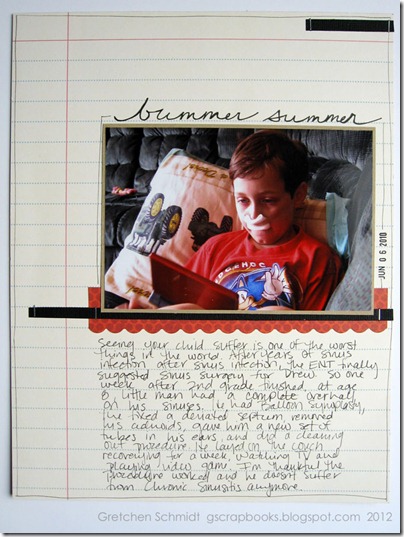 bummer summer
JUN 06 2010
Seeing your child suffer is one of the worst
things in the world. After years of sinus
infection after sinus infection, the ENT finally
suggested sinus surgery for Drew. So one
week after 2nd grade finished, at age
8, little man had a complete overhaul
on his sinuses. He had Balloon Synuplasty,
he fixed a deviated septum, removed
his adnoids, gave him a new set of
tubes in his ears, and did a cleaning
out procedure. He layed on the couch
recovering for a week watching TV and
playing video game. I'm thankful the
procedure worked and he doesn't suffer
from Chronic Sinusitis anymore.
Gretchen Schmidt gscrapbooks.blogspot.com 2012